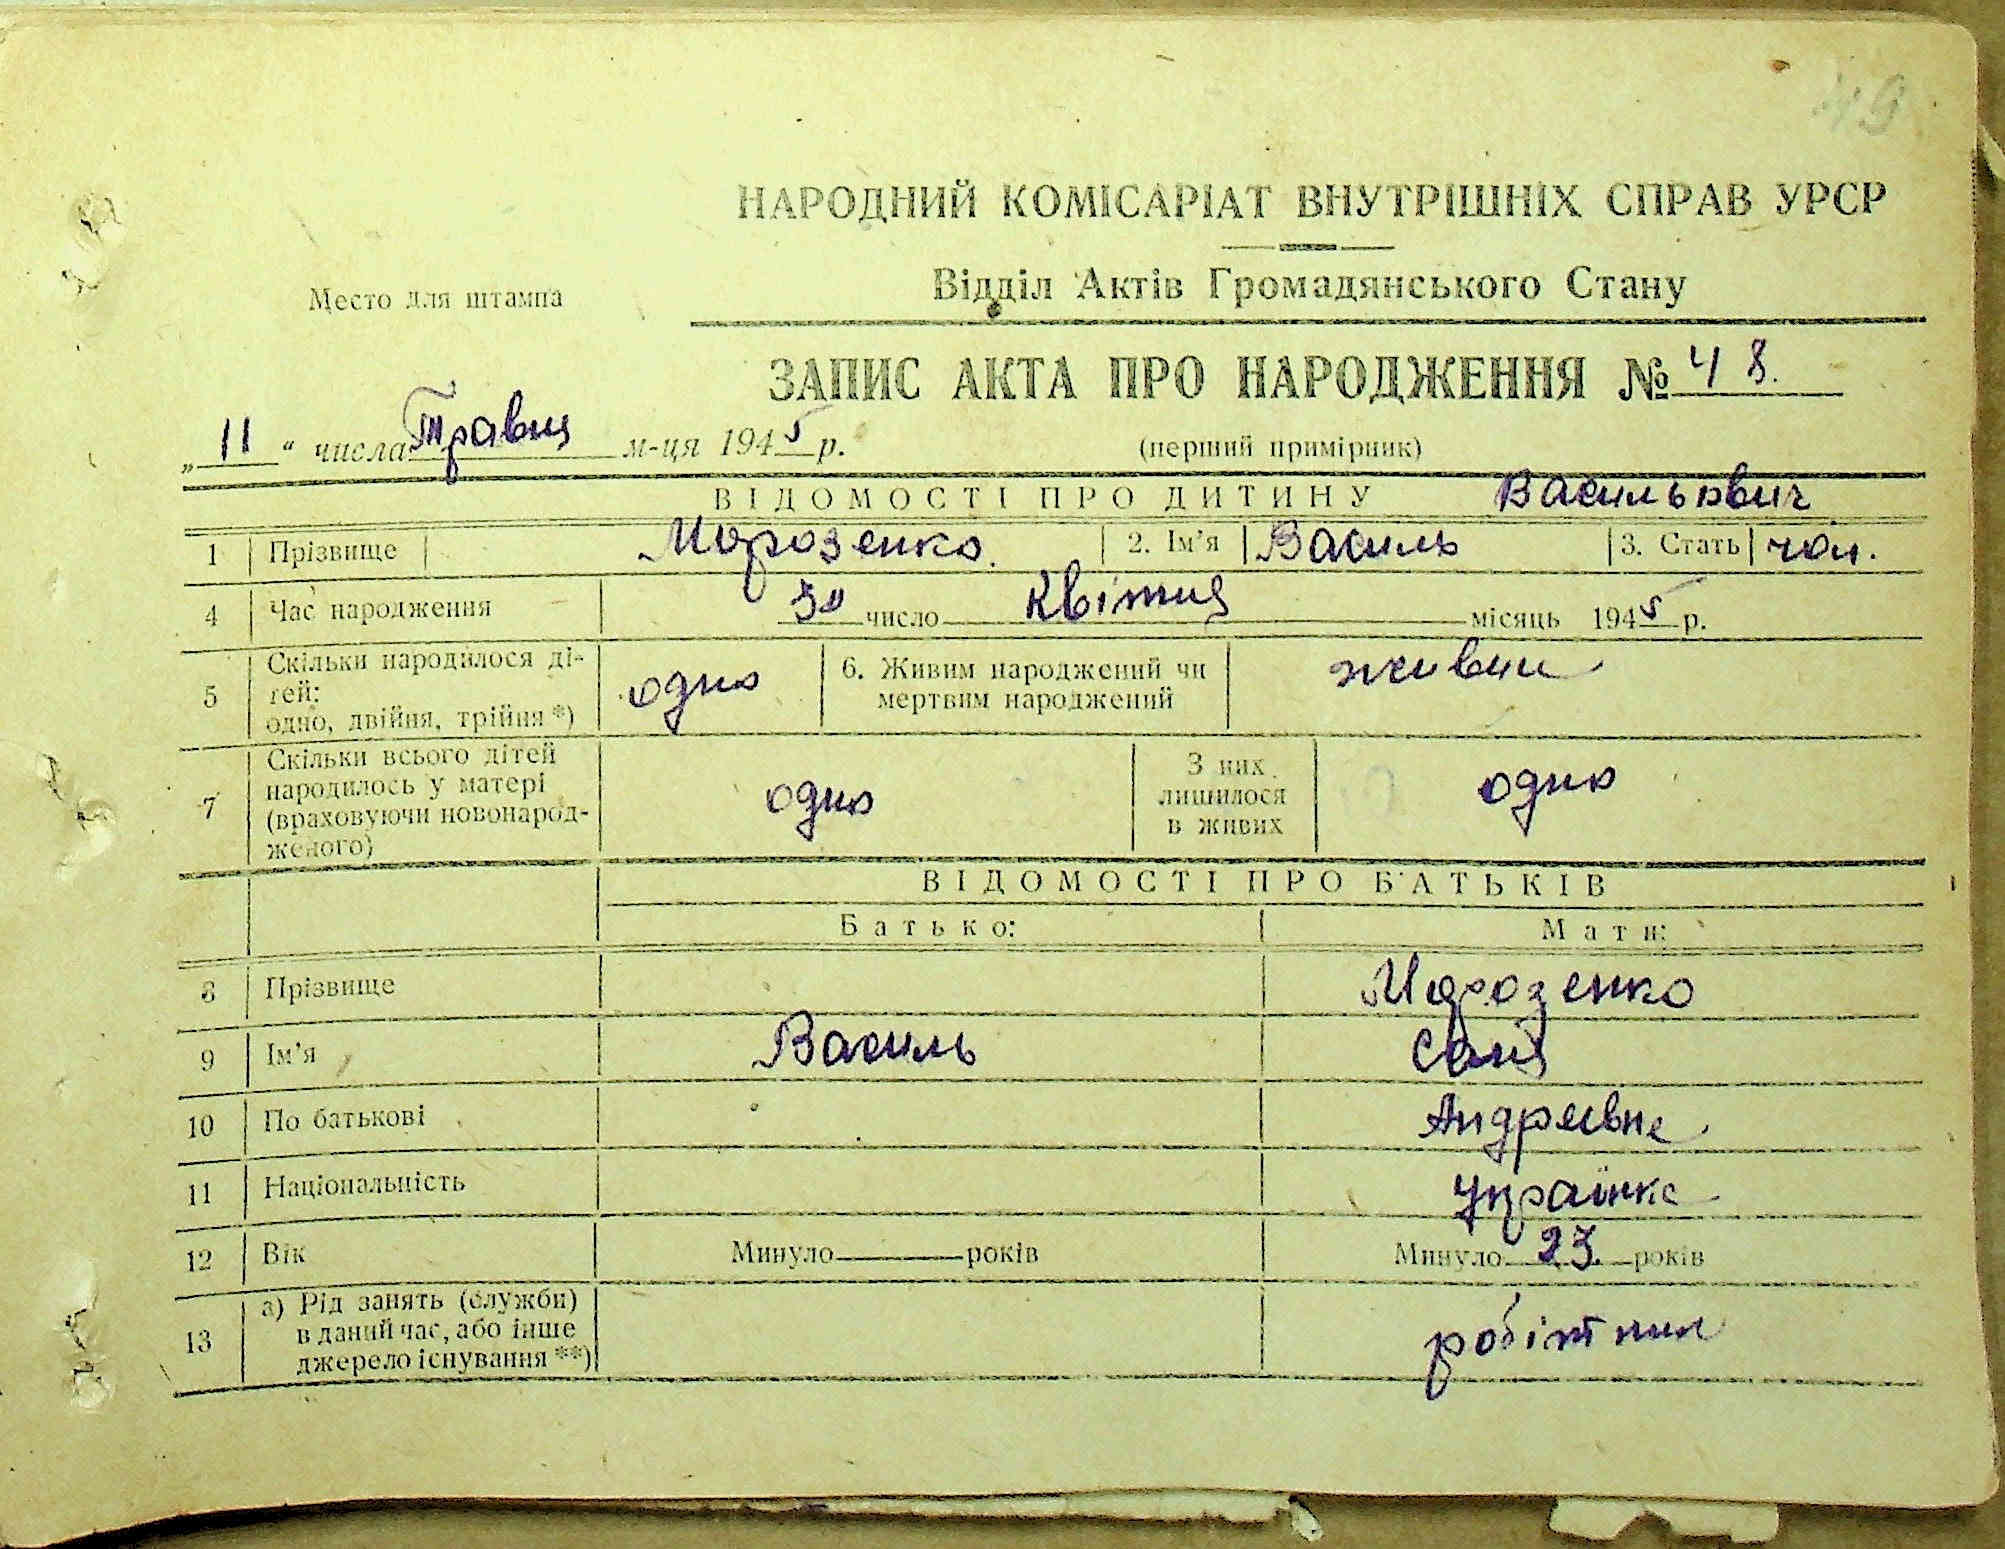 49
НАРОДНИЙ КОМІСАРІАТ ВНУТРІШНІХ СПРАВ УРСР
Место для штампа
Відділ Актів Громадянського Стану
ЗАПИС АКТА ПРО НАРОДЖЕННЯ № 48.
„11“ числа Травня м-ця 1945 р.
(перший примірник)
ВІДОМОСТІ ПРО ДИТИНУ Васильович
1 Прізвище Морозенко. 2. Ім'я Василь 3. Стать чол.
4 Час народження 30 число Квітня місяць 1945 р.
5 Скільки народилося ді-
тей:
одно, двійня, трійня *) одно 6. Живим народжений чи
мертвим народжений живим
7 Скільки всього дітей
народилось у матері
(враховуючи новонарод-
женого) одно З них
лишилося
в живих одно
ВІДОМОСТІ ПРО БАТЬКІВ
Батько: Мати:
8 Прізвище Морозенко
9 Ім'я Василь Соня
10 По батькові Андреевна
11 Національність Українка
12 Вік Минуло років Минуло 23. років
13 а) Рід занять (служби)
в даний час, або інше
джерело існування **) робітник